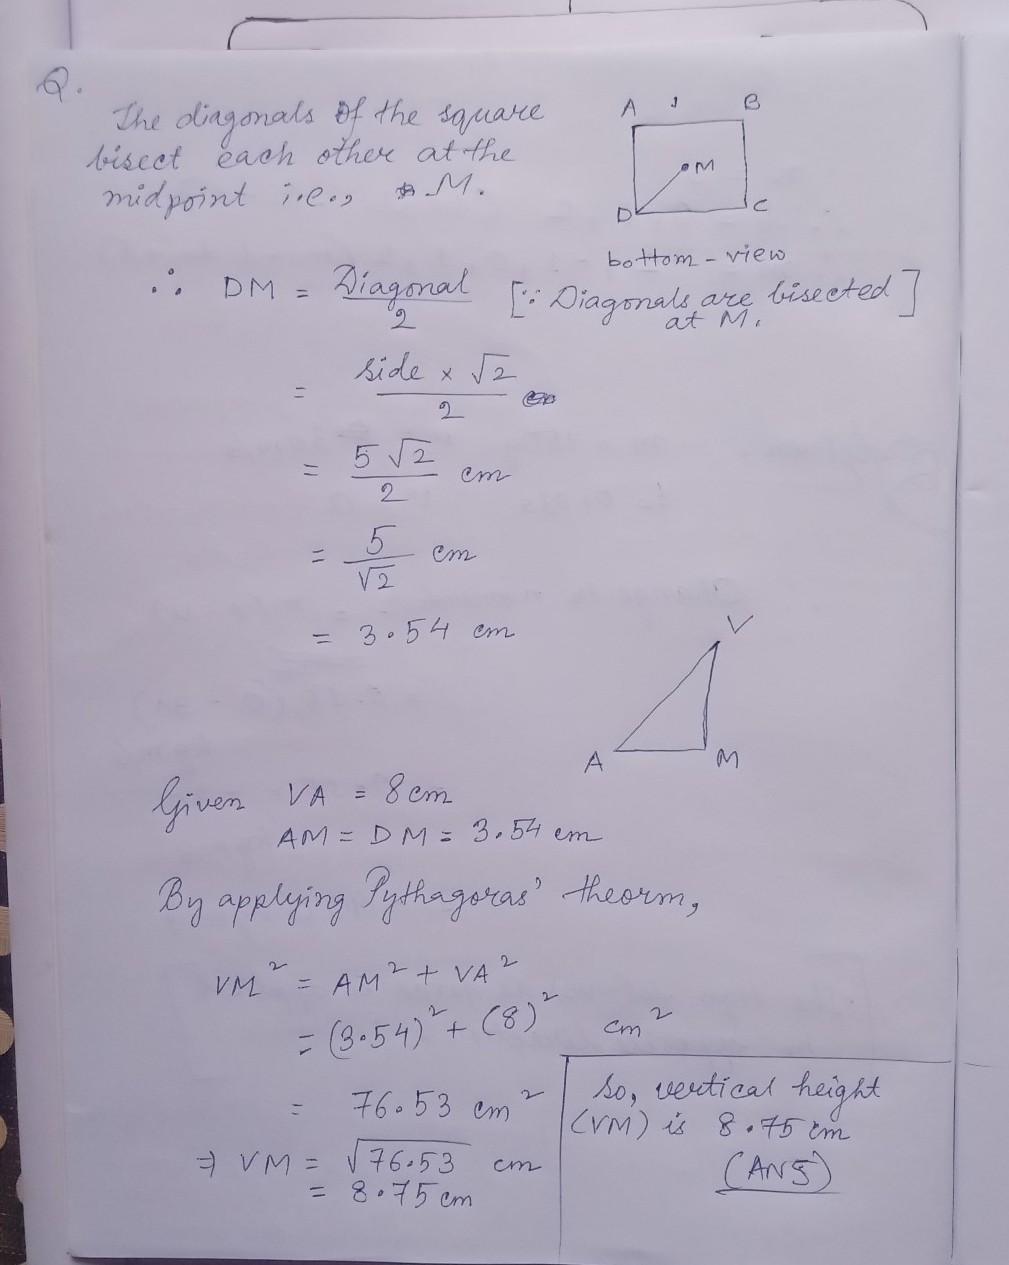 Q.
The diagonals of the square
bisect each other at the
midpoint i.e., M.
A B
M
D C
bottom - view
∴ DM = Diagonal / 2 [∵ Diagonals are bisected at M.]
= side × √2 / 2
= 5 √2 / 2 cm
= 5 / √2 cm
= 3.54 cm
V
A M
Given VA = 8 cm
AM = DM = 3.54 cm
By applying Pythagoras' theorm,
VM² = AM² + VA²
= (3.54)² + (8)² cm²
= 76.53 cm²
⇒ VM = √76.53 cm
= 8.75 cm
So, vertical height
(VM) is 8.75 cm
(ANS)